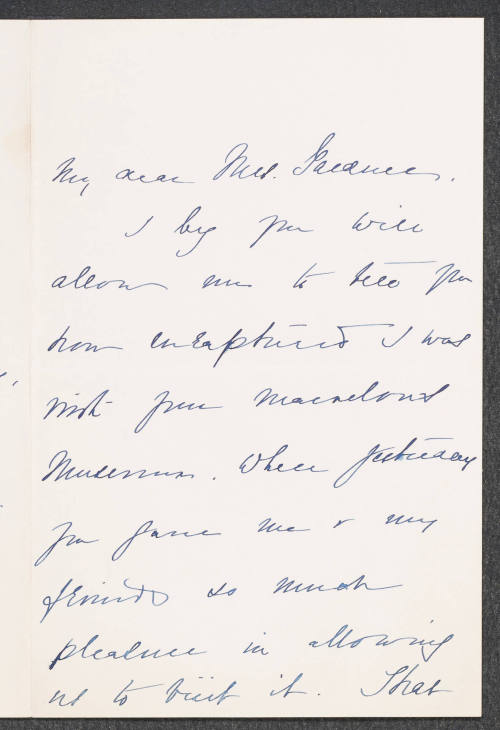 My dear Mrs. Gardner.
I beg you will
allow me to tell you
how enraptured I was
with your marvelous
Museum. When yesterday
you gave me & my
friends so much
pleasure in allowing
us to visit it. That